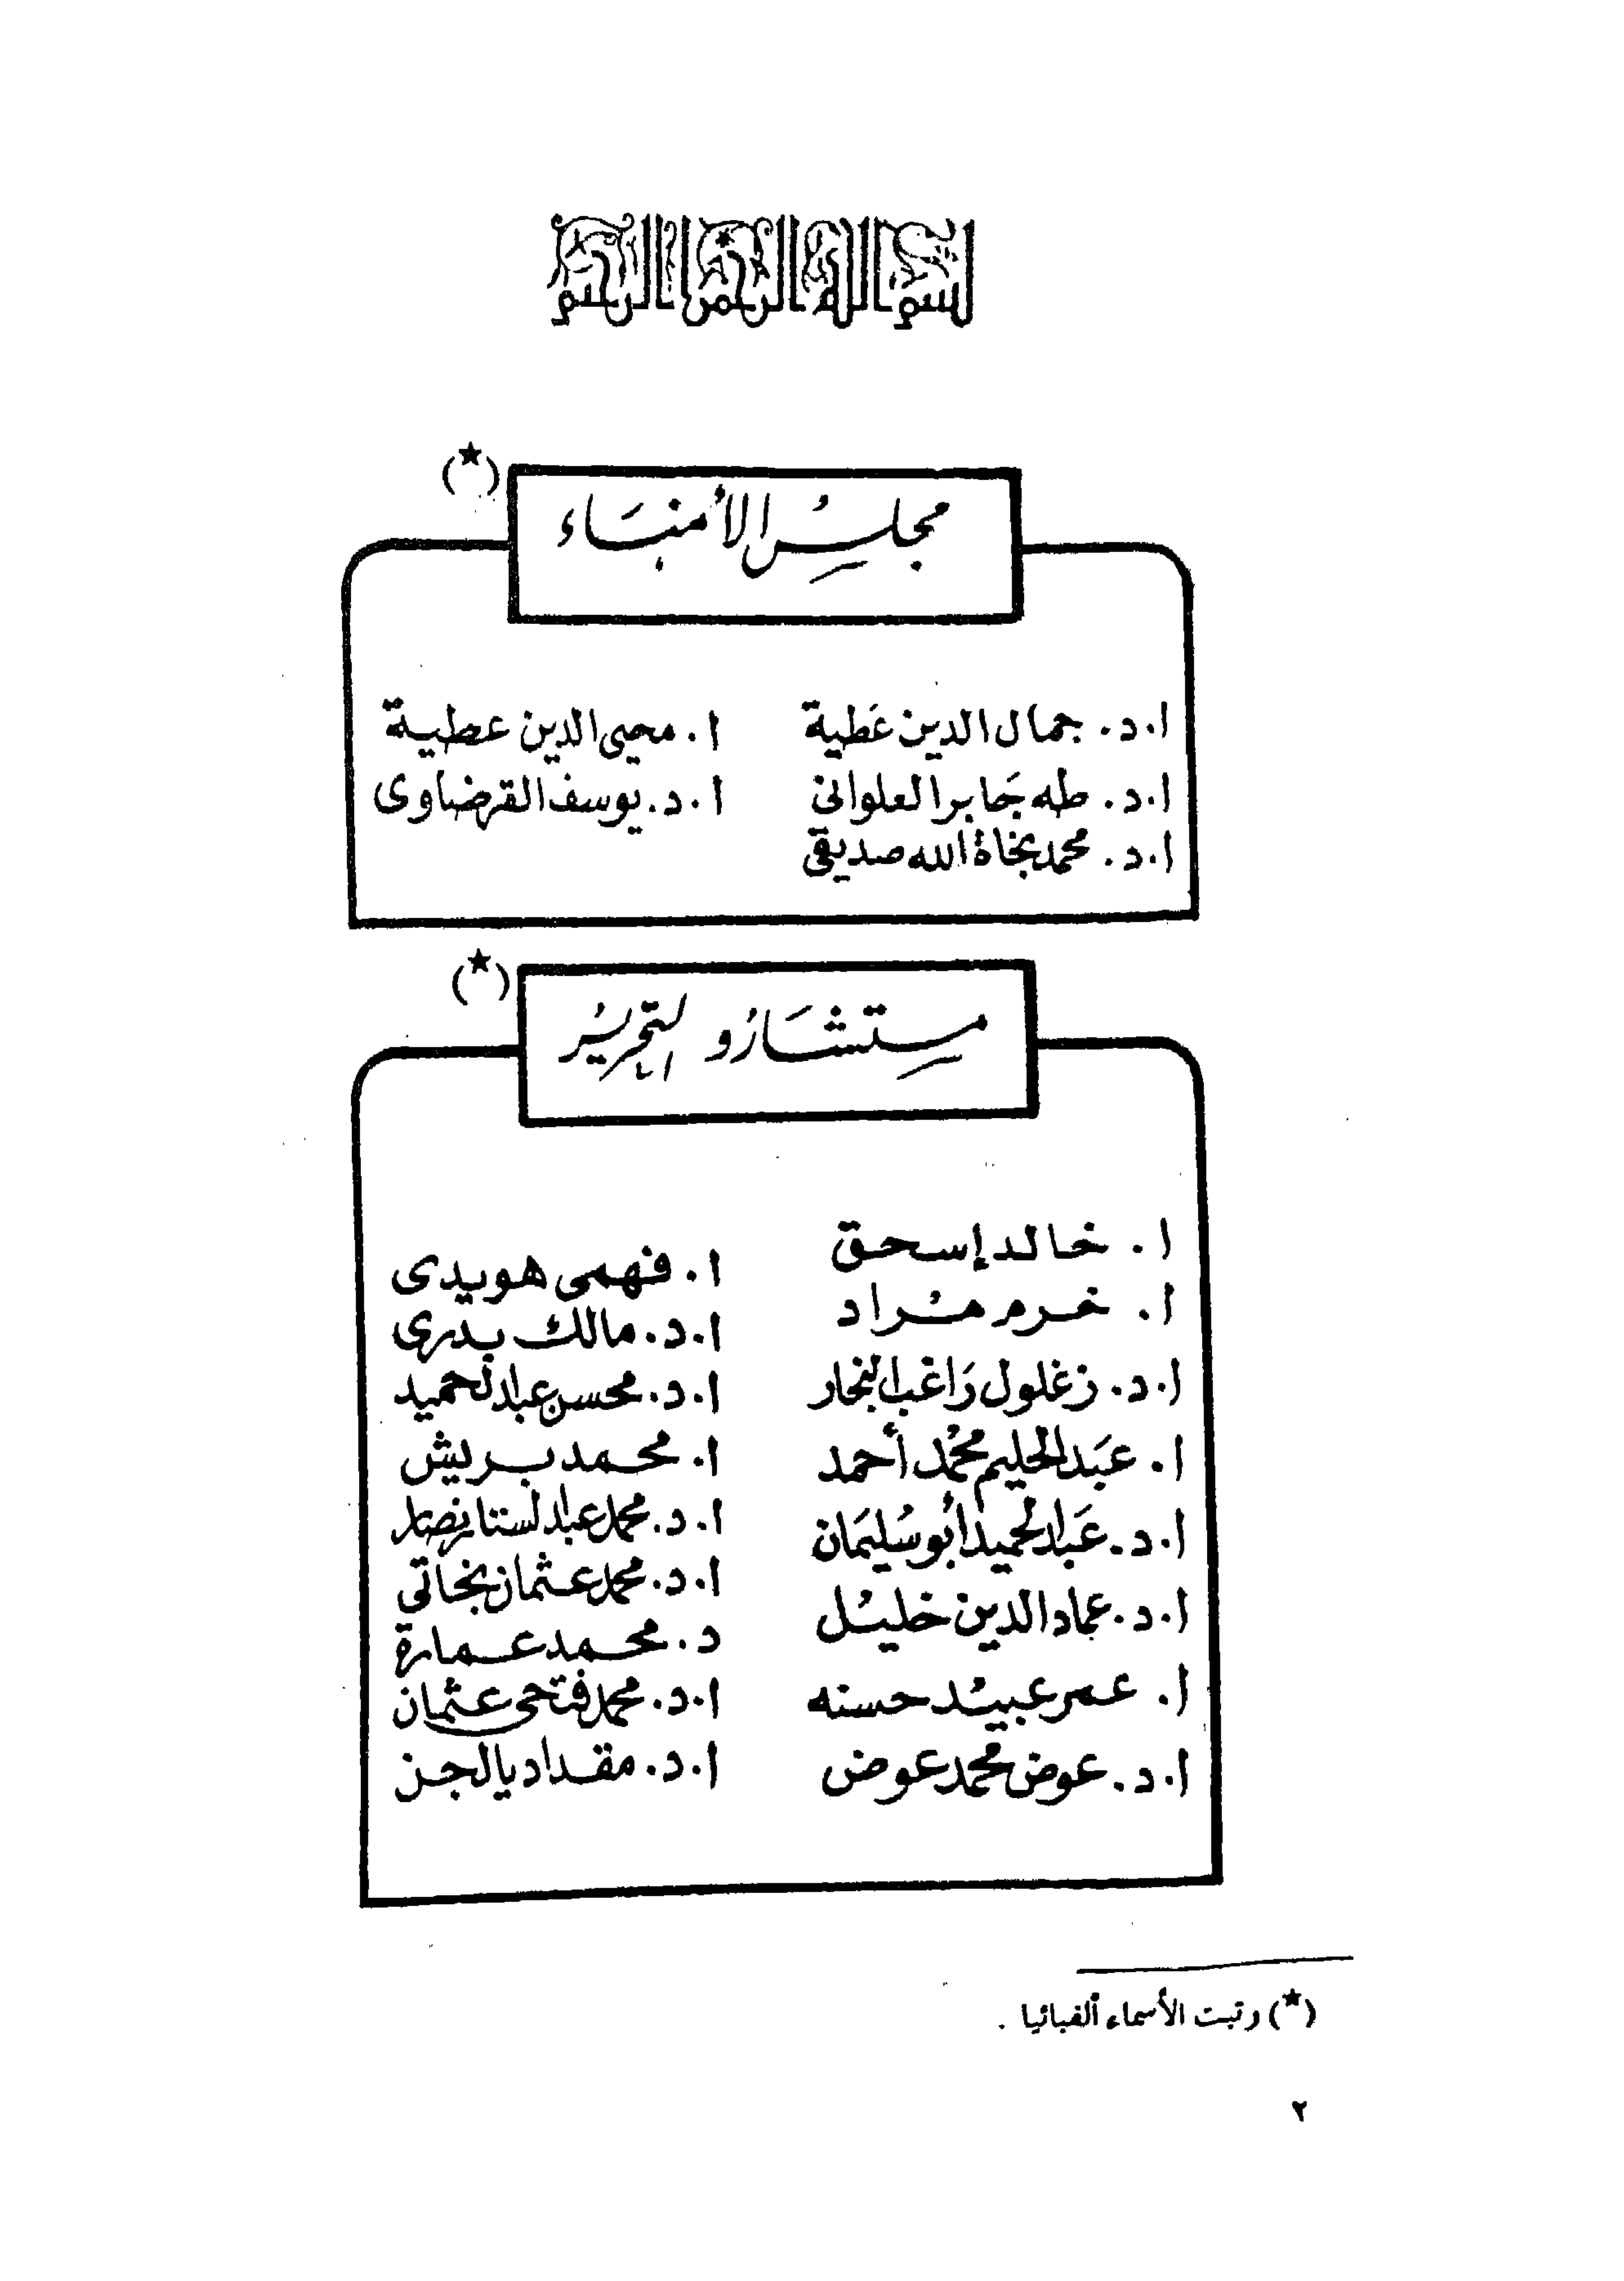 بسم الله الرحمن الرحيم
مجلس الأمناء (★)
ا.د. جمال الدين عَطية
ا.د. طه جَابر العلوانى
ا.د. محمد نجاة الله صديقى
ا. محيى الدين عطية
ا.د. يوسف القرضاوى
مستشارُو التحرير (★)
ا. خالد إسحق
ا. خرم مُراد
ا.د. زغلول رَاغب النجار
ا. عبَد الحليم محُمد أحمد
ا.د. عَبد الحميد أبو سُليمَان
ا.د. عماد الدين خليُل
ا. عمر عبيُد حسنه
ا.د. عوض محمد عوض
ا. فهمى هويدى
ا.د. مالك بدرى
ا.د. محسن عبد الحميد
ا. محمد بريش
ا.د. محمد عبد الستار نصار
ا.د. محمد عثمان نجاتى
د. محمد عمارة
ا.د. محمد فتحى عثمان
ا.د. مقداد يالجن
(★) رتبت الأسماء ألفبائيا .
٢